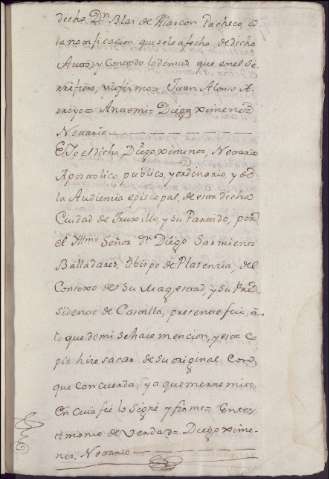 dicho Dn Blas de Alarcon Pacheco, a
la notificacion que se le a fecho, de dicho
Auto, y Concuerdo lo demas que en el se
rrefiere, y lo firmo = Juan Alonso A-
rroyo = Ante mi = Diego ximenez
Notario
E Yo el dicho Diego ximenez, Notario
Apostolico, publico, y ordinario, y de
la Audiencia episcopal, de esta dicha
Ciudad de Truxillo y su Partido, por
el Illmo Señor dn Diego Sarmiento
Balladares, Obispo de Plasencia, del
Consexo de Su Magestad, y su Pre-
sidente de Castilla, presente fui, a
lo que de mi se hace mencion, y esta co-
pia hice sacar de su original Con
que concuerda, y a que me rremito,
En cuia fee lo signe y firme = En tes-
timonio de verdad = Diego xime-
nez, Notario